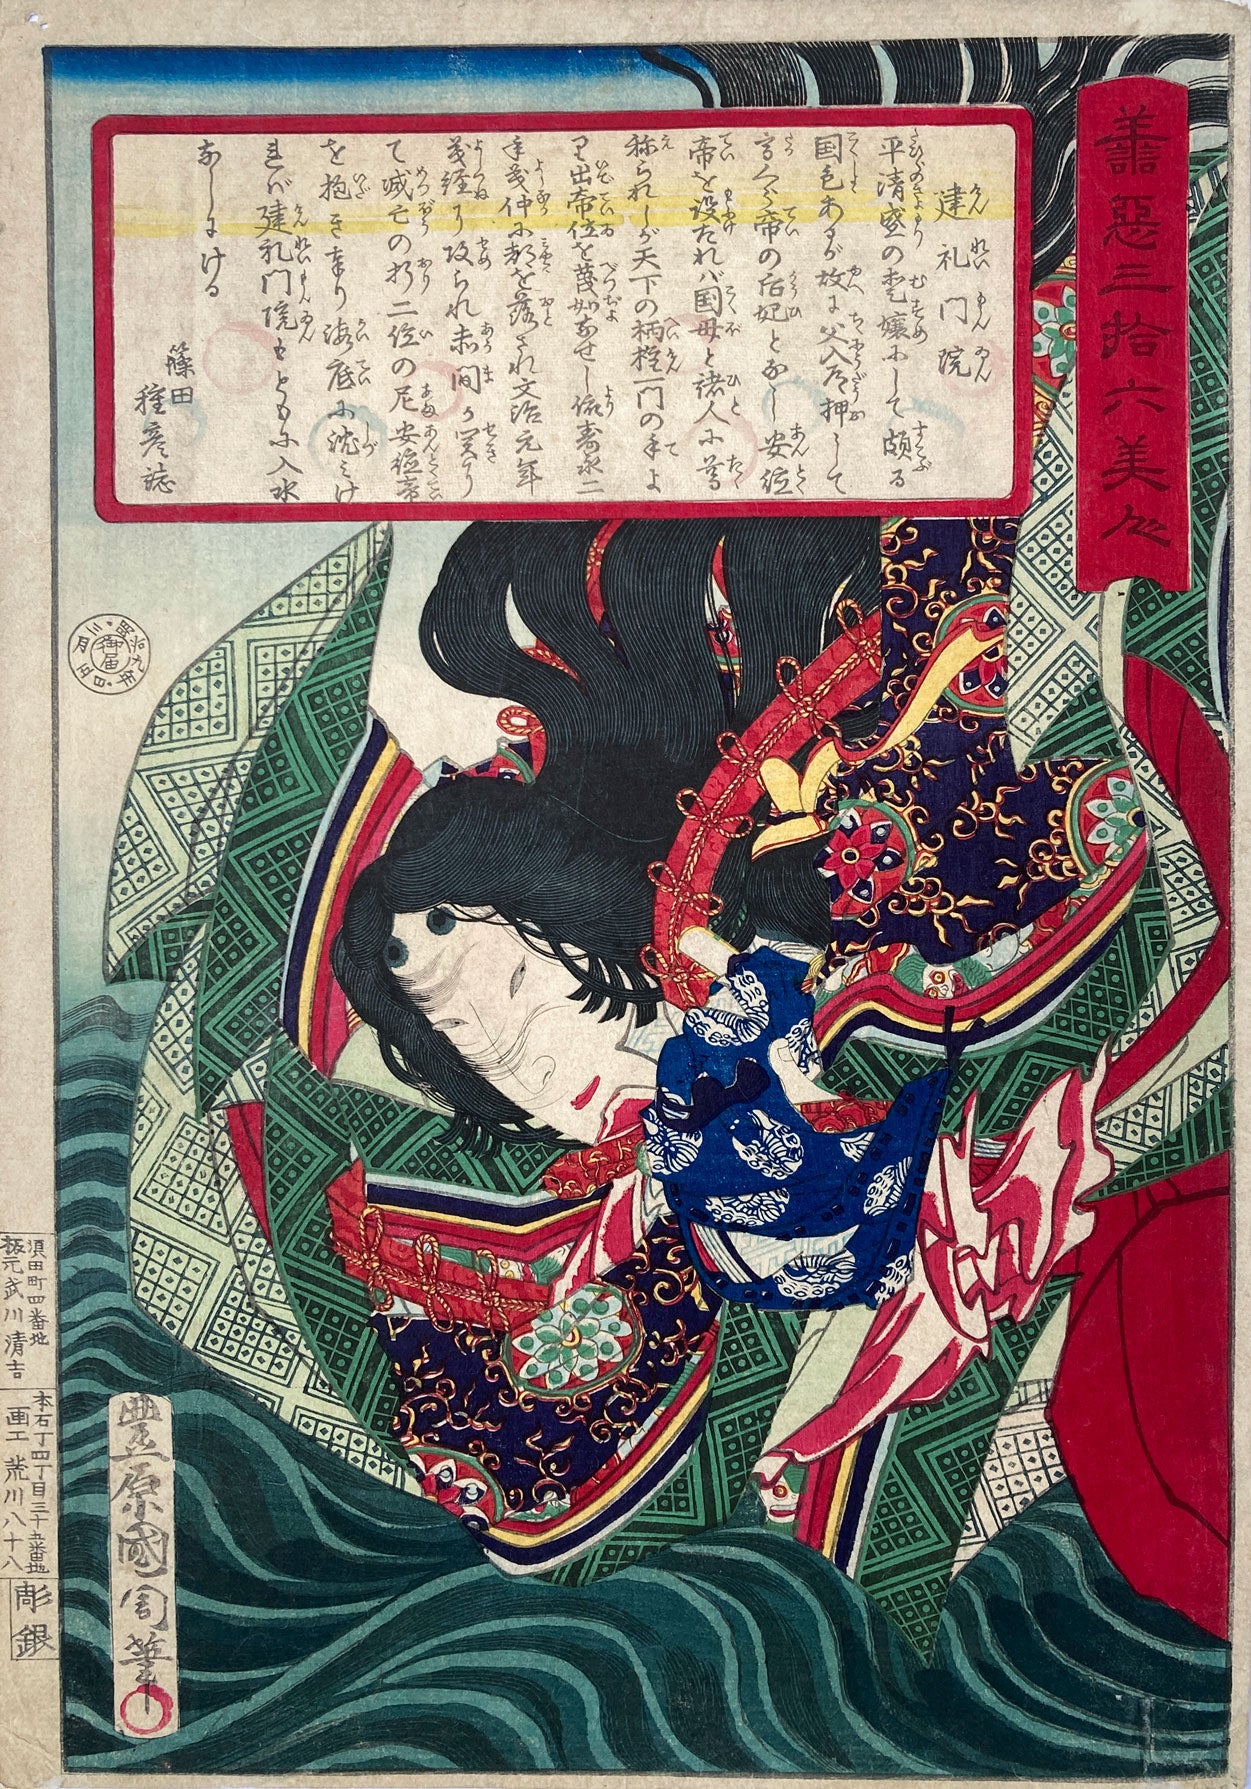 善悪三拾六美人
建礼門院
けんれいもんゐん
平清盛の娘嬢にして頗る
国色あるが故に父入道押して
高くら帝の后妃となし安徳
帝を設たれバ国母と諸人に尊
称られしが天下の柄権一門の手よ
り出帝位を蔑如なせし依寿永二
年義仲に都を落され文治元年
義経に攻られ赤間が関に
て滅亡の折二位の尼安徳帝
を抱き奉り海底に沈みけ
れば建礼門院もともに入水
なしにける
篠田
種彦誌
御届
明治九年
三月五日
須田町四番地
板元武川清吉
本石丁四丁目三十五番地
画工荒川八十八
彫銀
豊原國周筆